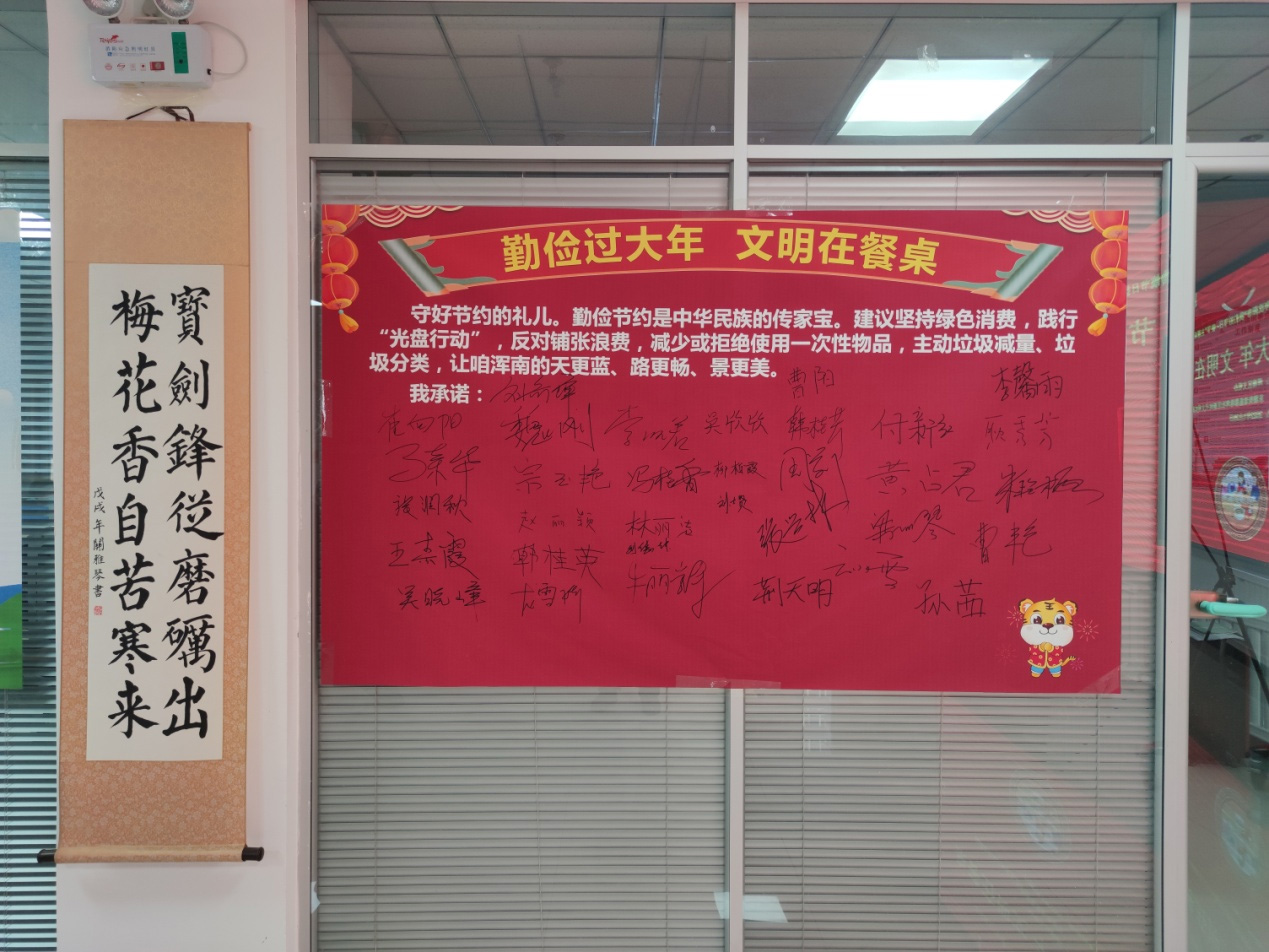 寶劍鋒從磨礪出
梅花香自苦寒来
戊戌年關雅琴書
勤俭过大年 文明在餐桌
守好节约的礼儿。勤俭节约是中华民族的传家宝。建议坚持绿色消费，践行
“光盘行动”，反对铺张浪费，减少或拒绝使用一次性物品，主动垃圾减量、垃
圾分类，让咱浑南的天更蓝、路更畅、景更美。
我承诺：
曹阳 李馨雨
崔向阳 魏刚 吴欣欣 付新
冯桂香 柳 黄占君
赵丽颖 林丽
王素霞 韩桂英 曹艳
吴晓 牛丽 荆天明 孙茜